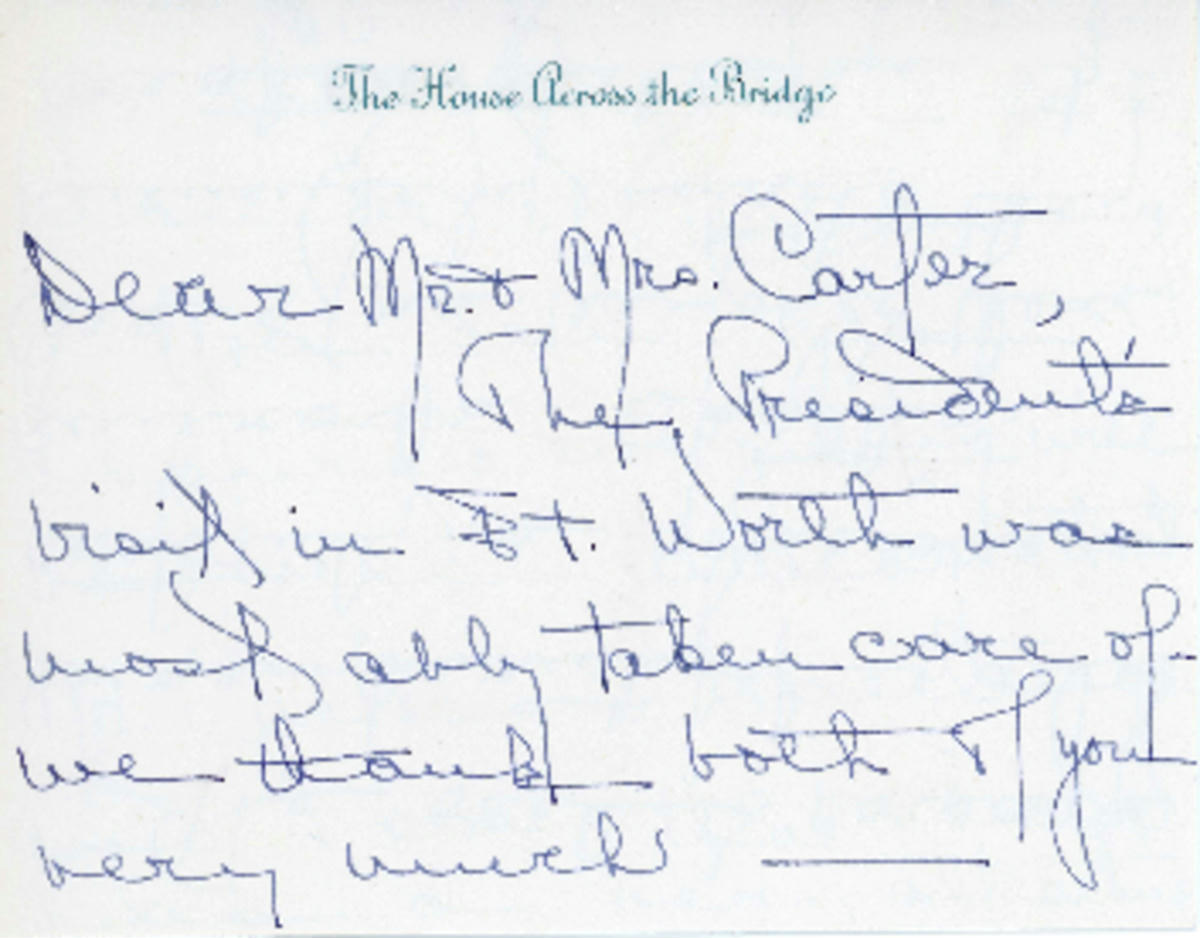 The House Across the Bridge
Dear Mr. & Mrs. Carter,
The President's
visit in Ft. Worth was
most ably taken care of
we thank both of you
very much —